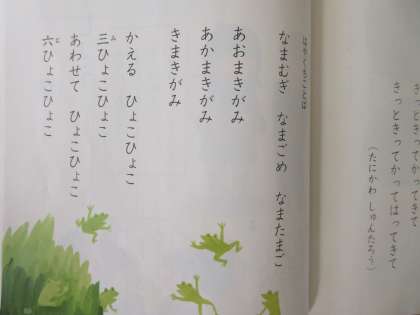 きっときってかってきて
きっときってかってはってきて
（たにかわ しゅんたろう）
はやくちことば
なまむぎ なまごめ なまたまご
あおまきがみ
あかまきがみ
きまきがみ
かえる ひょこひょこ
三ひょこひょこ
あわせて ひょこひょこ
六ひょこひょこ